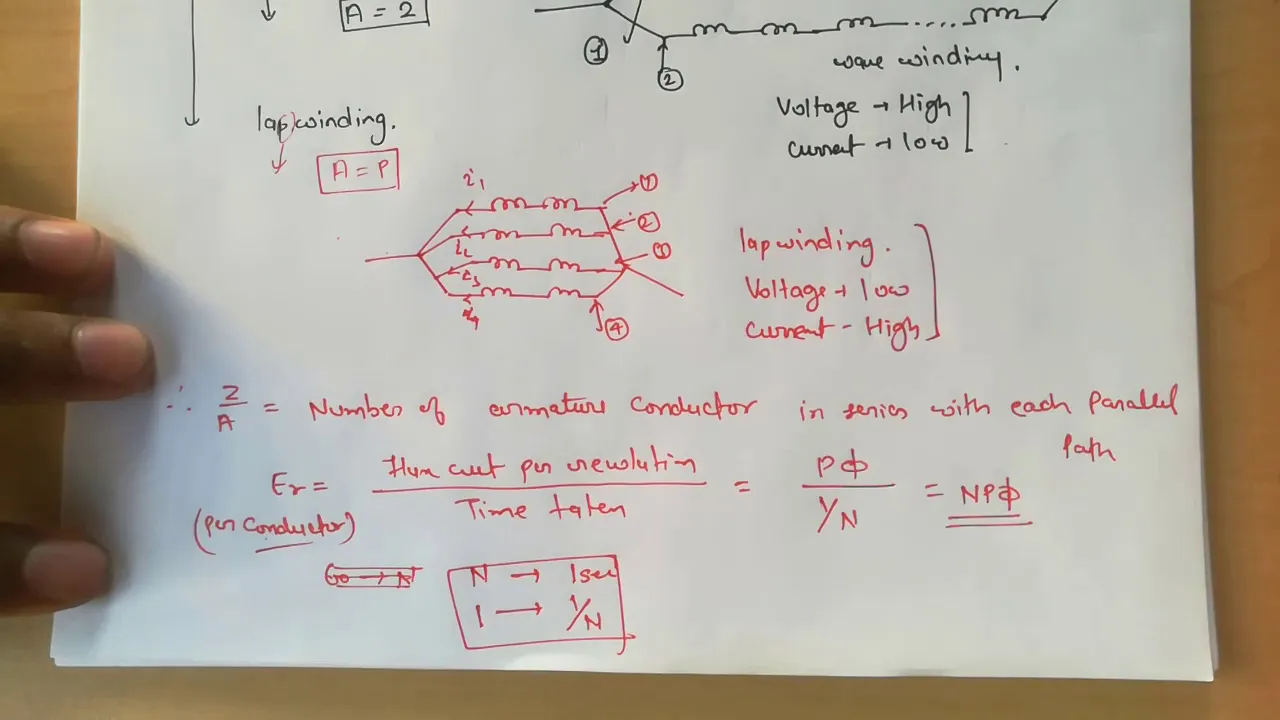 A = 2
① ②
wave winding.
Voltage → High
current → low
lap winding.
A = P
i1 ①
②
i2 ③
i3
i4 ④
lap winding.
Voltage → low
current - High
∴ Z/A = Number of armature conductor in series with each parallel path
Er = Flux cut per revolution / Time taken = PΦ / 1/N = NPΦ
(per conductor)
N → 1sec
1 → 1/N